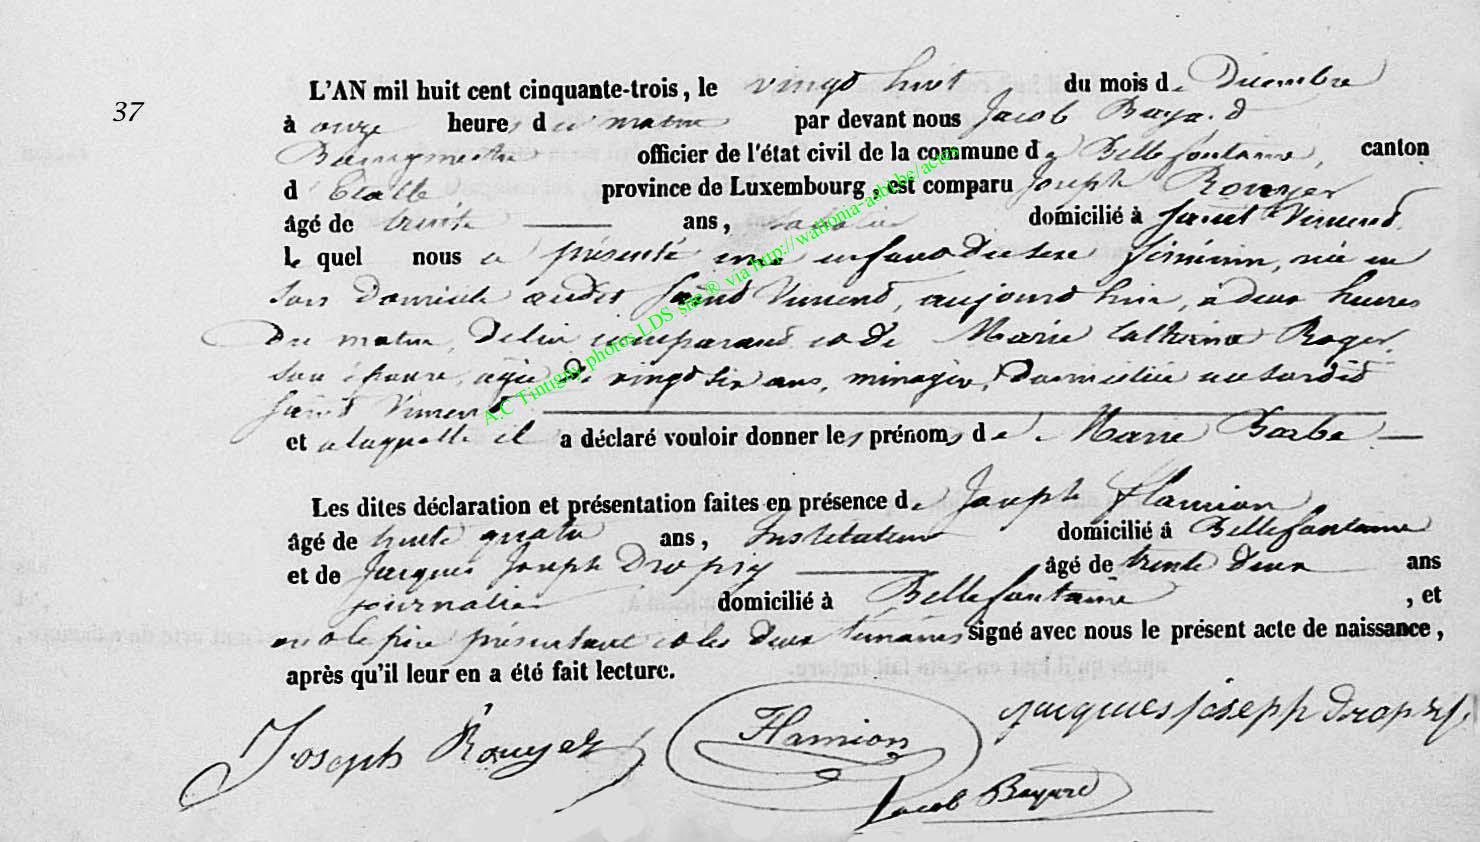 37
L'AN mil huit cent cinquante-trois, le vingt huit du mois de Décembre
à onze heures du matin par devant nous Jacob Bayard
Bourgmestre officier de l'état civil de la commune de Bellefontaine, canton
d'Etalle province de Luxembourg, est comparu Joseph Rouyer
âgé de trente ans, domicilié à Saint Vincent
lequel nous a présenté une enfant du sexe féminin, née en
son domicile audit Saint Vincent, aujourd'hui, à deux heures
du matin, de lui comparant et de Marie Catherine Roger
son épouse, agée de vingt six ans, ménagère, domiciliée au susdit
Saint Vincent
et a laquelle il a déclaré vouloir donner les prénoms de Marie Barbe
Les dites déclaration et présentation faites en présence de Joseph Flamion
âgé de trente quatre ans, Instituteur domicilié à Bellefontaine
et de Jacques Joseph Dropsy âgé de trente deux ans
journalier domicilié à Bellefontaine, et
ont le père présentant et les deux témoins signé avec nous le présent acte de naissance,
après qu'il leur en a été fait lecture.
Joseph Rouyer
Flamion
jacques joseph dropsy
Jacob Bayard
A.C Tintigny photos LDS site ® via http://wallonia-asbl.be/actes